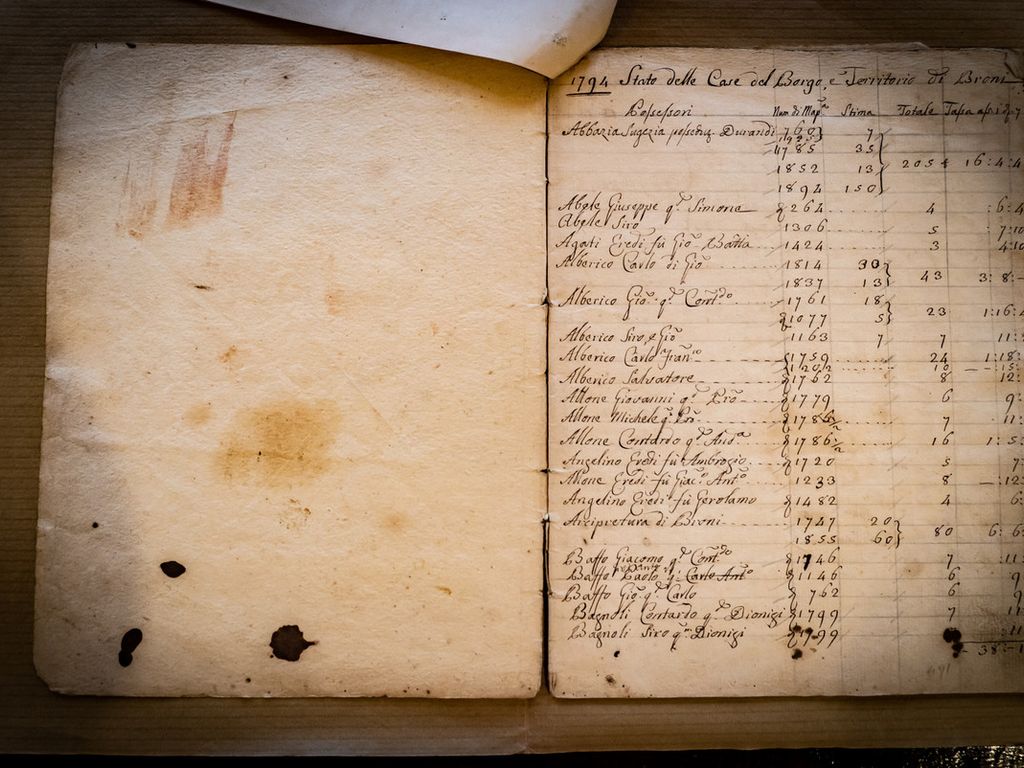 1794 Stato delle Case del Borgo, e Territorio di Broni
Possessori Num di Mapᵃ Stima Totale Tassa
Abbazia possedᵗᵃ Durandi 760 7
1785 35
1852 13 2054 16:4:4
1894 150
Abele Giuseppe qᵐ Simone 264 4 :6:4
Abele Siro 1306 5 7:10
Agati Eredi fù Gioˢ Batta 1424 3 4:10
Alberico Carlo di Gioˢ 1814 30
1837 13 43 3:8:-
Alberico Gioˢ qᵐ Contᵈᵒ 1761 18
1077 5 23 1:16:4
Alberico Siro, e Gioˢ 1163 7 7 11:
Alberico Carlo Franᶜᵒ 1759 24 1:18:
1202 10 -15:
Alberico Salvatore 1762 8 12:
Allone Giovanni qᵐ 1779 6 9:
Allone Michele qᵐ 1786/2 7 11:
Allone Contardo qᵐ Andᵃ 1786/2 16 1:5:
Angelino Eredi fù Ambrogio 1720 5 7
Allone Eredi fù Giacᵒ Antᵒ 1233 8 -:12:
Angelino Eredi fù Gerolamo 1482 4 6:
Arcipretura di Broni 1747 20
1855 60 80 6:6
Baffo Giacomo qᵐ Contᵈᵒ 1746 7 11:
Baffo Paolo qᵐ Carlo Antᵒ 1146 6 9
Baffo Gioˢ qᵐ Carlo 762 6 9
Bagnoli Contardo qᵐ Dionigi 1799 7 11:
Bagnoli Siro qᵐ Dionigi 1799 :11
38:-